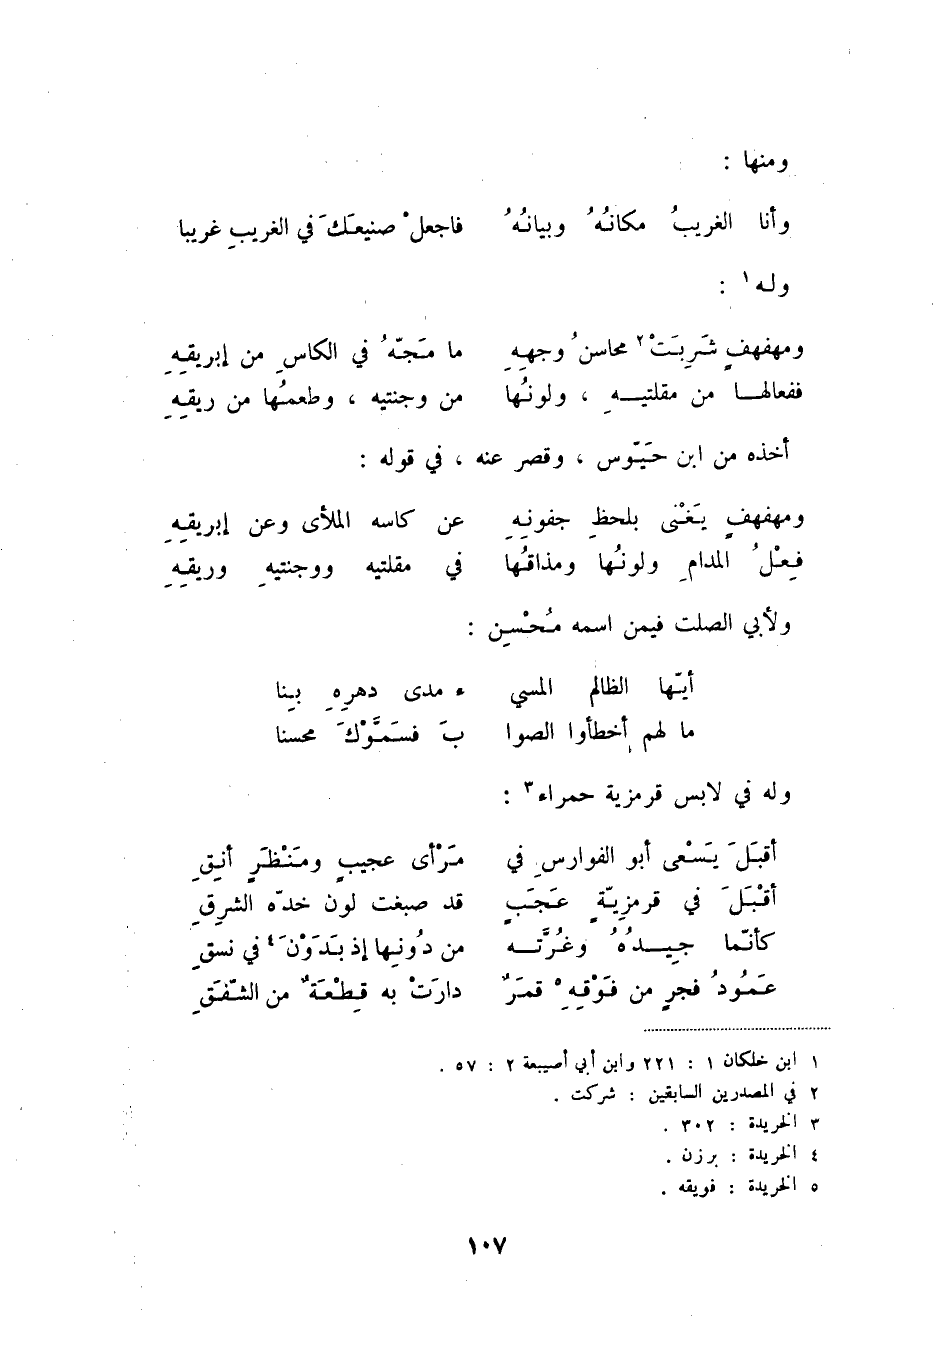 ومنها :
وأنا الغريبُ مكانُهُ وبيانُهُ فاجعلْ صنيعَكَ في الغريبِ غريبا
وله ١ :
ومهفهفٍ شَرِبَتْ ٢ محاسنُ وجهِهِ ما مَجّهُ في الكاسِ من إبريقِهِ
ففعالها من مقلتيهِ ، ولونُها من وجنتيه ، وطعمُها من ريقِهِ
أخذه من ابن حَيّوس ، وقصر عنه ، في قوله :
ومهفهفٍ يَغْنى بلحظِ جفونِهِ عن كاسه الملأى وعن إبريقِهِ
فِعْلُ المدامِ ولونُها ومذاقُها في مقلتيه ووجنتيهِ وريقِهِ
ولأبي الصلت فيمن اسمه مُحْسِن :
أيّها الظالم المسي ء مدى دهرِهِ بِنا
ما لهم أخطأوا الصوا بَ فسَمَّوْكَ محسنا
وله في لابس قرمزية حمراء ٣ :
أقبَلَ يَسْعى أبو الفوارسِ في مَرْأى عجيبٍ ومَنْظَرٍ أنِقِ
أقْبَلَ في قرمزِيّةٍ عَجَبٍ قد صبغت لون خدّه الشرِقِ
كأنّما جِيدُهُ وغُرَّته من دُونِها إذ بَدَوْنَ ٤ في نسقِ
عَمُودُ فجرٍ من فَوْقِهِ ٥ قمَرٌ دارَتْ به قِطْعَةٌ من الشّفَقِ
١ ابن خلكان ١ : ٢٢١ وابن أبي أصيبعة ٢ : ٥٧ .
٢ في المصدرين السابقين : شركت .
٣ الخريدة : ٣٠٢ .
٤ الخريدة : برزن .
٥ الخريدة : فويقه .
١٠٧